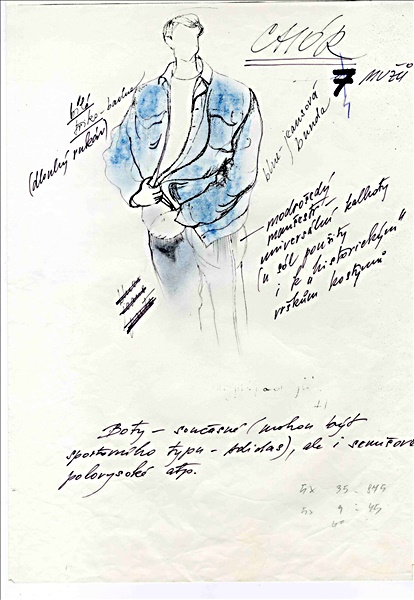 CHÓR
7 MUŽŮ
bílá
(dlouhý rukáv)
blue jeansová
bunda
modrošedý
manšestr
universální kalhoty
(u sól použity
i k "historickým"
vrškům kostýmů
Boty – současné (mohou být
sportovního typu – Adidas), ale i semišové
polovysoké atp.
5x 35 - 845
5x 9 - 45